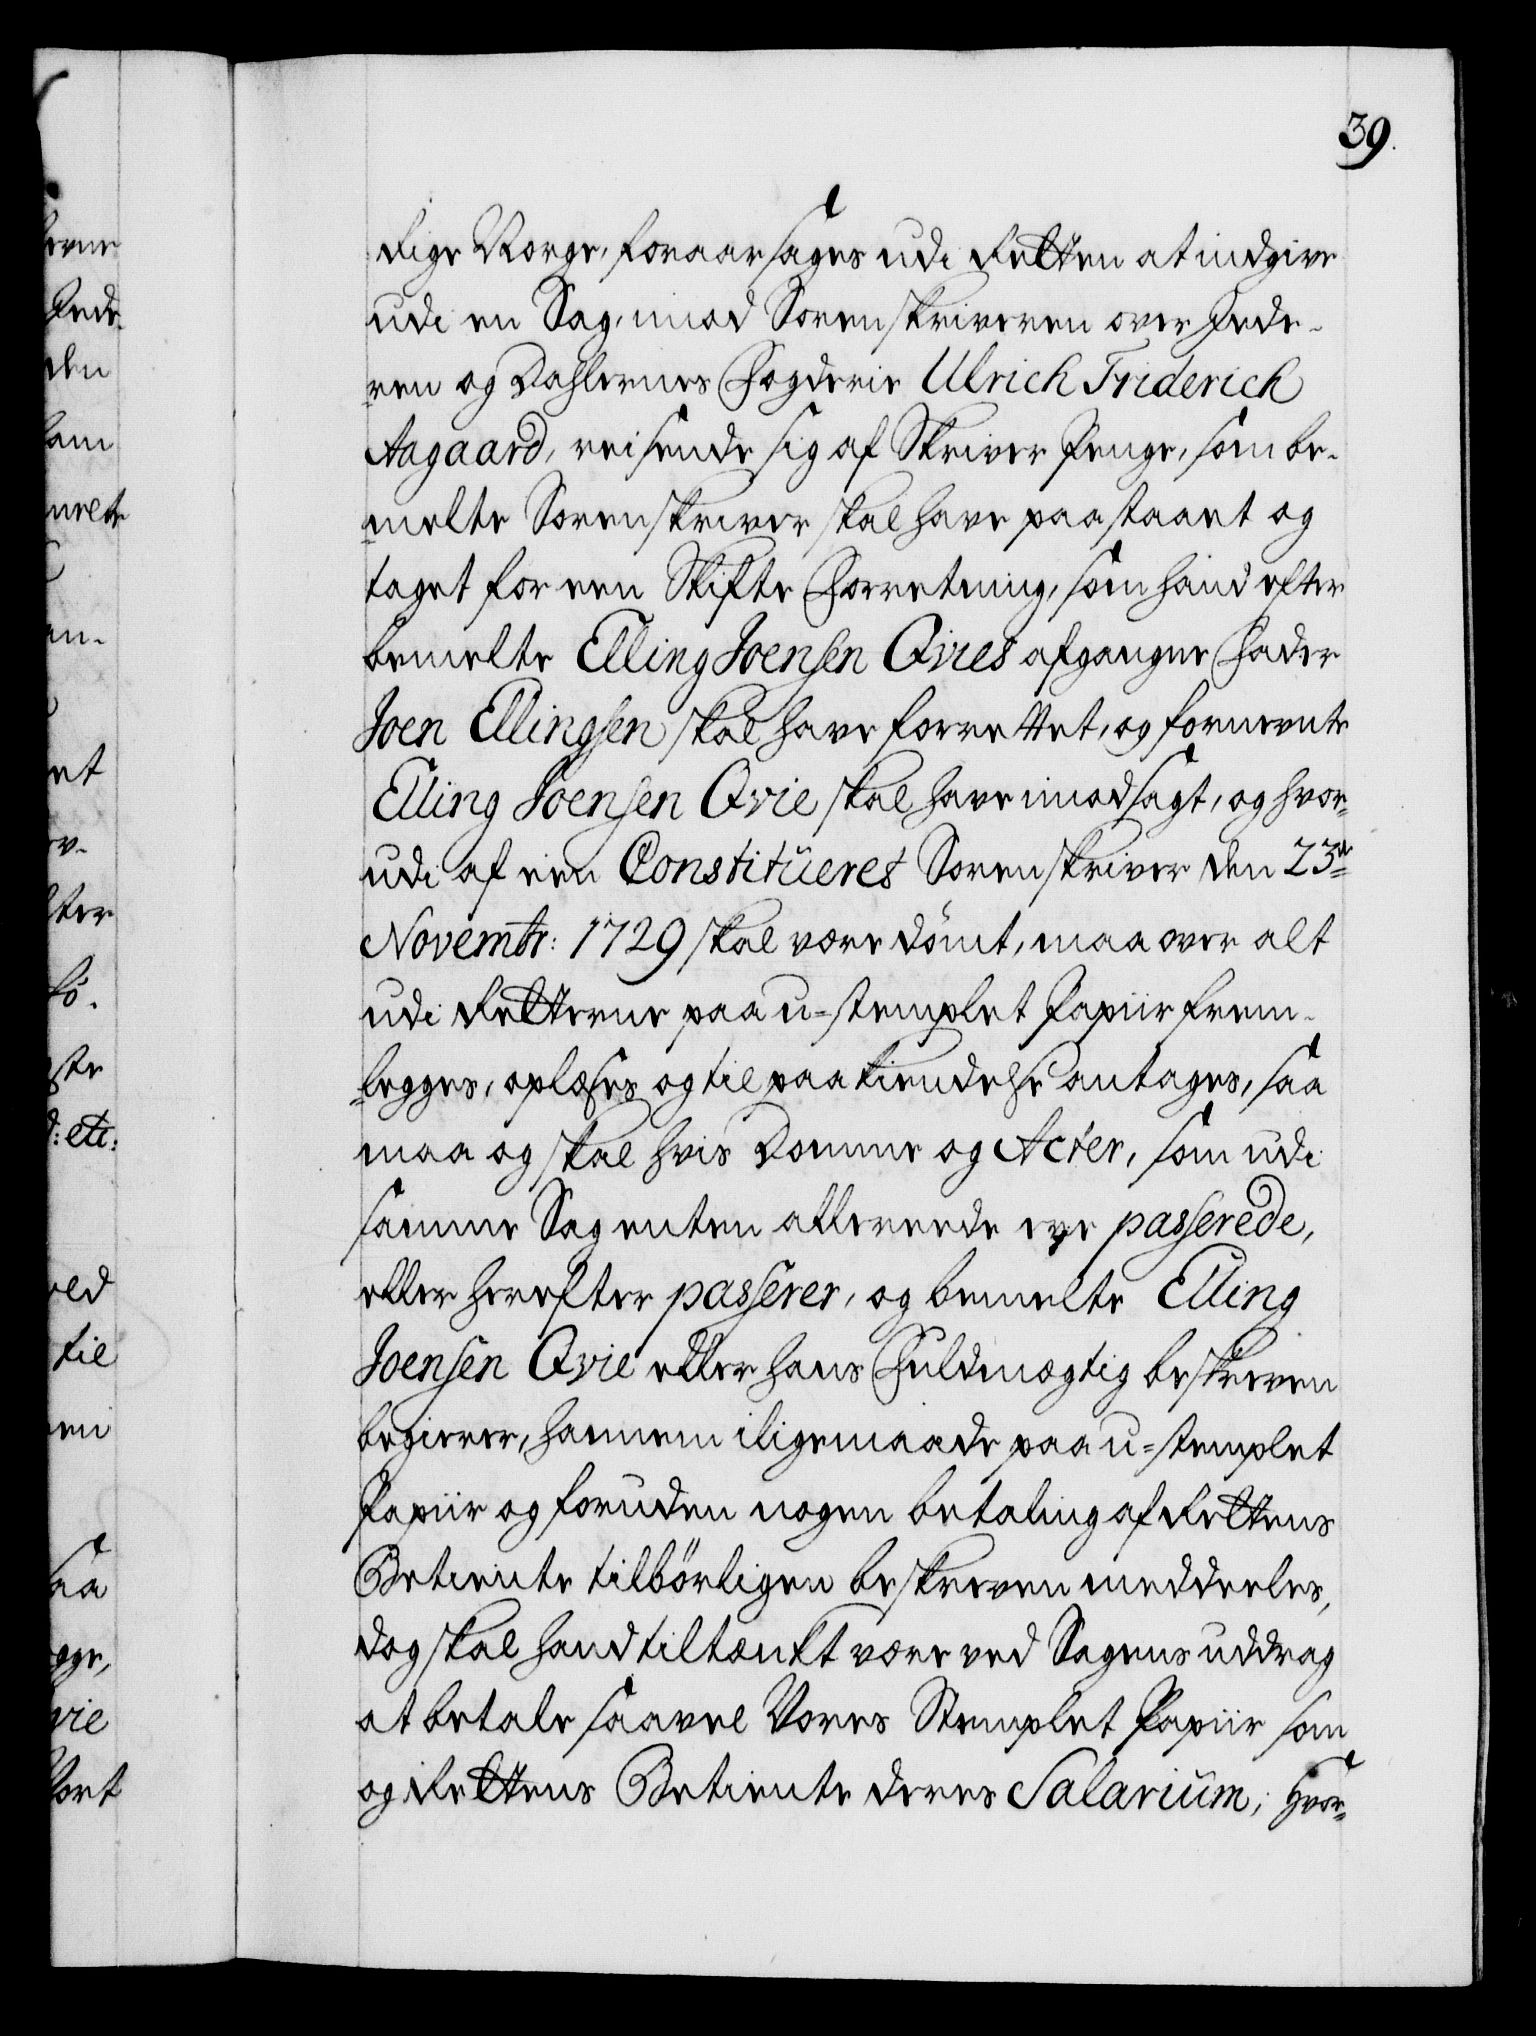 39.
Rige Norge, foraarsages udi Retten at indgive
udi en Sag, imod Sorenskriveren over Jede-
ren og Dahlernes Fogderie Ulrich Friderich
Aagaard, reisende sig af Skriver Penge, som be-
melte Sorenskriver skal have paastaaet og
taget for een Skifte Forretning, som hand efter
bemelte Elling Joensen Qvies afgangne Fader
Joen Ellingsen skal have forrettet, og fornevnte
Elling Joensen Qvie skal have imodsagt, og hvor-
udi af een Constitüeret Sorenskriver den 23de
Novembr: 1729 skal være dømt, maa over alt
udi Retterne paa u-stemplet Papiir frem-
legges, oplæses og til paakiendelse antages, saa
maa og skal hvis Domme og Acter, som udi
samme Sag enten allereede ere passerede,
eller herefter passerer, og bemelte Elling
Joensen Qvie eller hans Fuldmægtig beskreven
begierer, hannem iligemaade paa u-stemplet
Papiir og foruden nogen betaling af Rettens
Betiente tilbørligen beskreven meddeeles,
dog skal hand tiltænkt være ved Sagens uddrag
at betale saavel Vores Stemplet Papiir som
og Rettens Betiente deres Salarium; Hvor-